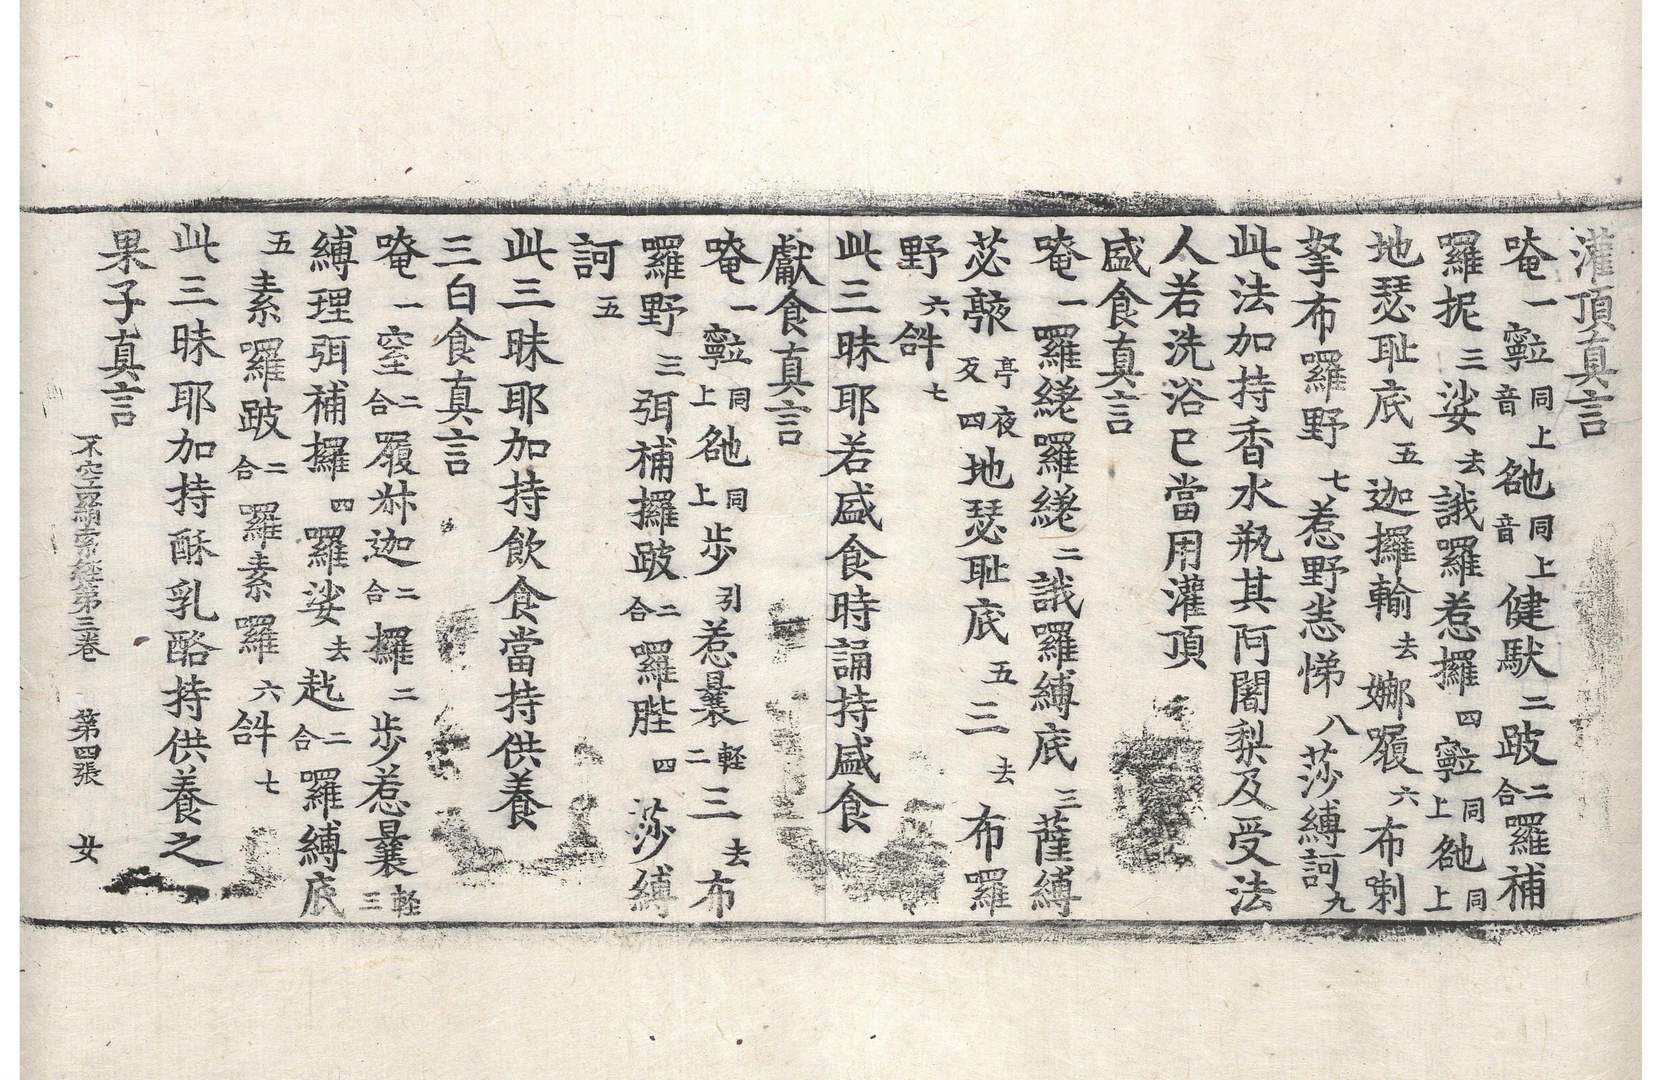 灌頂真言
唵一𤚥同上音𦀖同上音健馱二跛二合羅補
羅抳三娑去誐羅惹攞四𤚥同上𦀖同上
地瑟耻底五迦攞輸去娜嚩六布喇
拏布羅野七惹野恙悌八莎縛訶九
此法加持香水瓶其阿闍梨及受法
人若洗浴已當用灌頂
盛食真言
唵一羅㘑羅㘑二誐羅縛底三薩縛
苾𩕳亭夜反四地瑟耻底五三去布羅
野六𤙖七
此三昧耶若盛食時誦持盛食
獻食真言
唵一𤚥同上𦀖同上步引惹曩輕二三去布
羅野三弭補攞跛二合羅陛四莎縛
訶五
此三昧耶加持飲食當持供養
三白食真言
唵一窒二合履弶迦二合攞二步惹曩輕三
縛理弭補攞四羅娑去赲二合羅縛底
五素羅跛二合羅素羅六𤙖七
此三昧耶加持酥乳酪持供養之
果子真言
不空羂索經第三卷 第四張 女